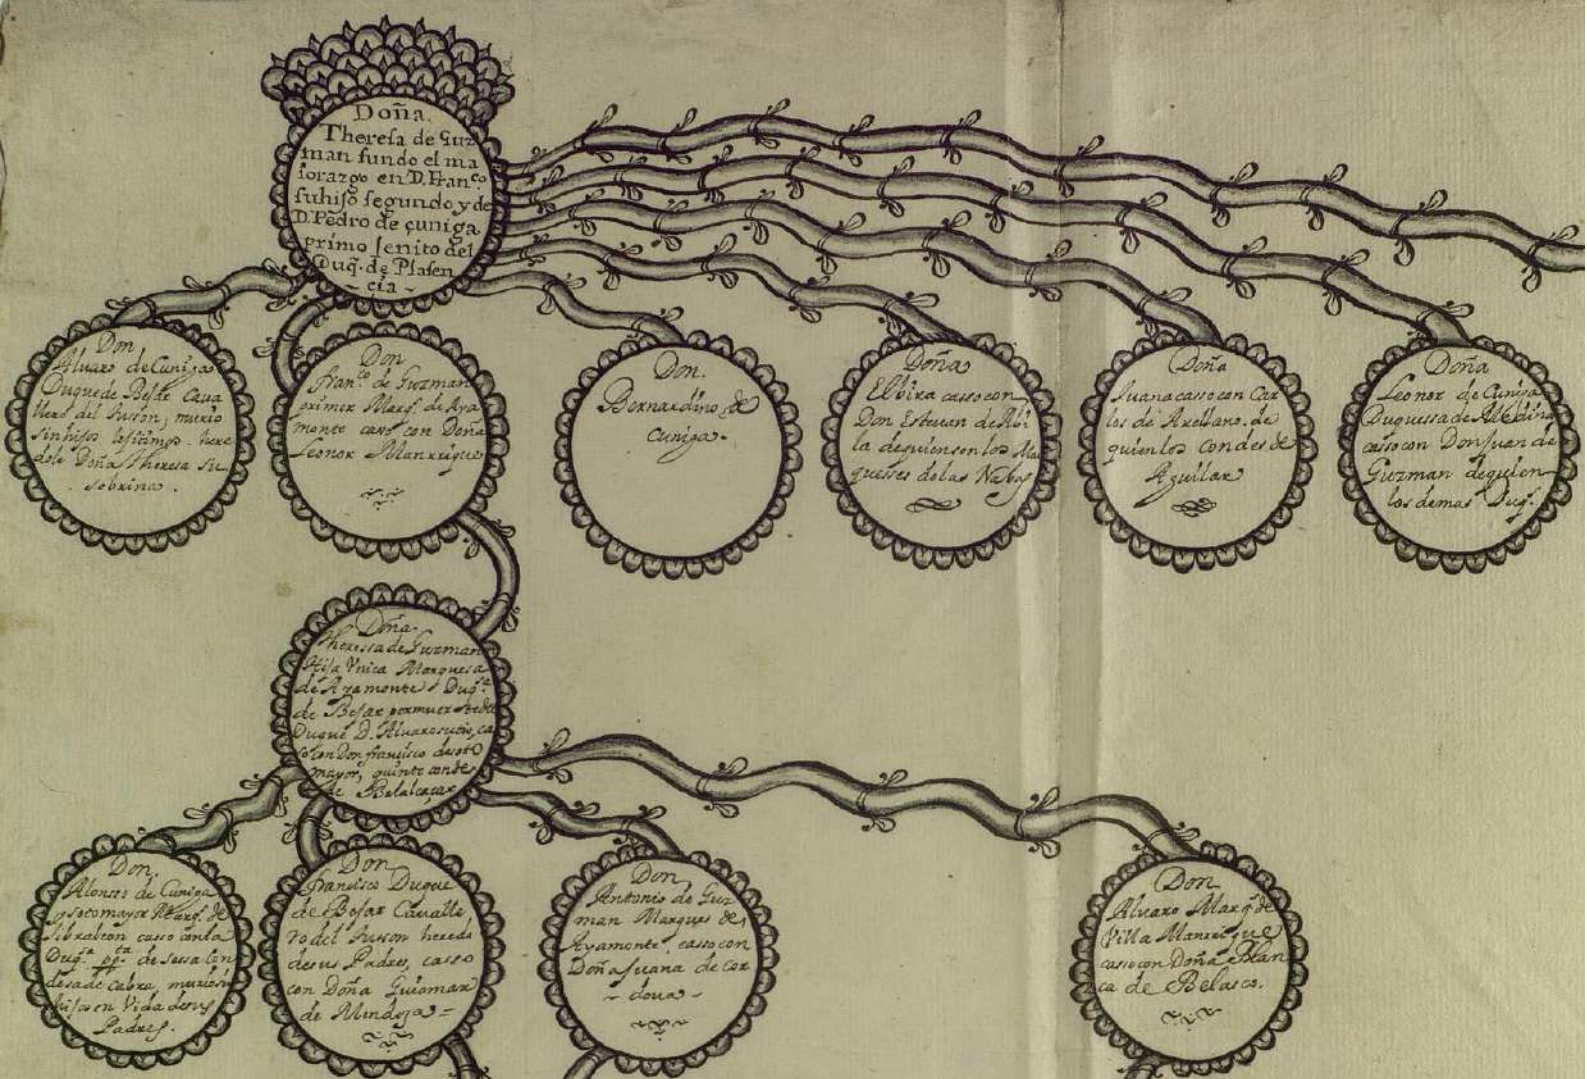 Doña.
Theresa de Guz
man fundo el ma
iorazgo en D. Fran.co
su hiso segundo y de
D. Pedro de çuniga
primo Jenito del
Duq. de Plasen
- cia -
Don
Alvaro de Cuniga
Duque de Besar Cava
llero del tuson, murio
sin hijos lesitimos. here
dole Doña Theresa su
. sobrina .
Don
fran.co de Guzman
primer Marq. de Aya
monte caso con Doña
Leonor Manrrique
Don.
Bernardino de
Cuniga.
Doña
Elbira casso con
Don Estevan de Abi
la de quien son los Ma
quesses de las Nabas
Doña
Juana casso con Car
los de Arellano. de
quien los Condes de
Aguilar
Doña
Leonor de Cuniga
Duquessa de Medina
casso con Don Juan de
Guzman de quien
los demas Duq.s
Doña
Theressa de Guzman
Hija Vnica Marquesa
de Ayamonte Duq.a
de Besar por muerte del
Duque D. Alvaro su tio, ca
so con Don francisco de soto
mayor, quinto conde
de Belalcaçar
Don.
Alonsso de Cuniga
y sotomayor Marq. de
Jibraleon casso con la
Duq.a pp.ta de sessa Con
desa de Cabra, murio sin
hijos en Vida de sus
Padres.
Don
francisco Duque
de Besar Cavalle
ro del tuson heredo
de sus Padres, casso
con Doña Guiomar
de Mendoza =
Don
Antonio de Guz
man Marques de
Ayamonte, casso con
Doña Juana de Cor
- dova -
Don
Alvaro Marq. de
Villa Manrrique
casso con Doña Blan
ca de Belasco.